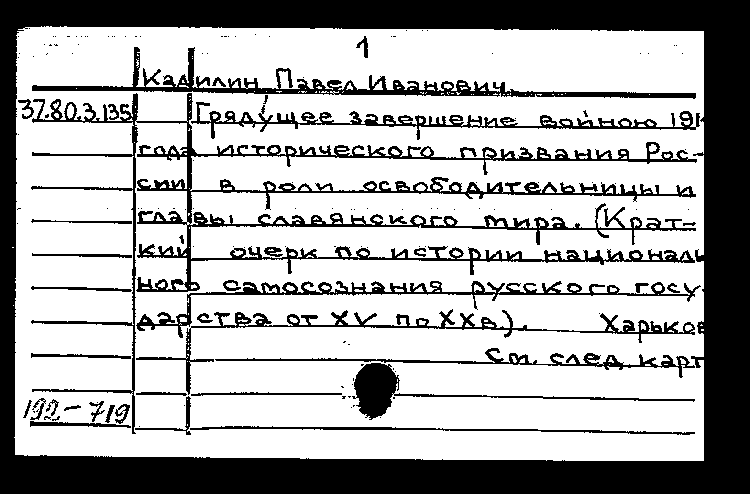 1
Кадилин Павел Иванович.
37.80.3.135 Грядущее завершение войною 191
года исторического призвания Рос-
сии в роли освободительницы и
главы славянского мира. (Крат=
кий очерк по истории националь
ного самосознания русского госу-
дарства от XV по XXв.). Харьков
См. след. карт
192-719